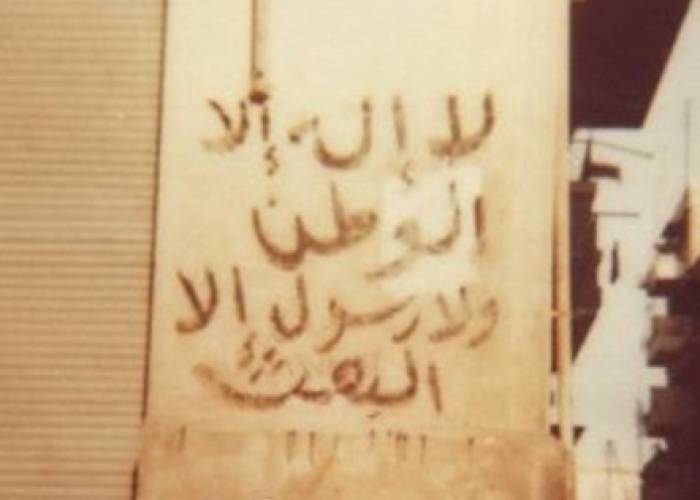 لا إله إلا
الوطن
ولا رسول إلا
البعث